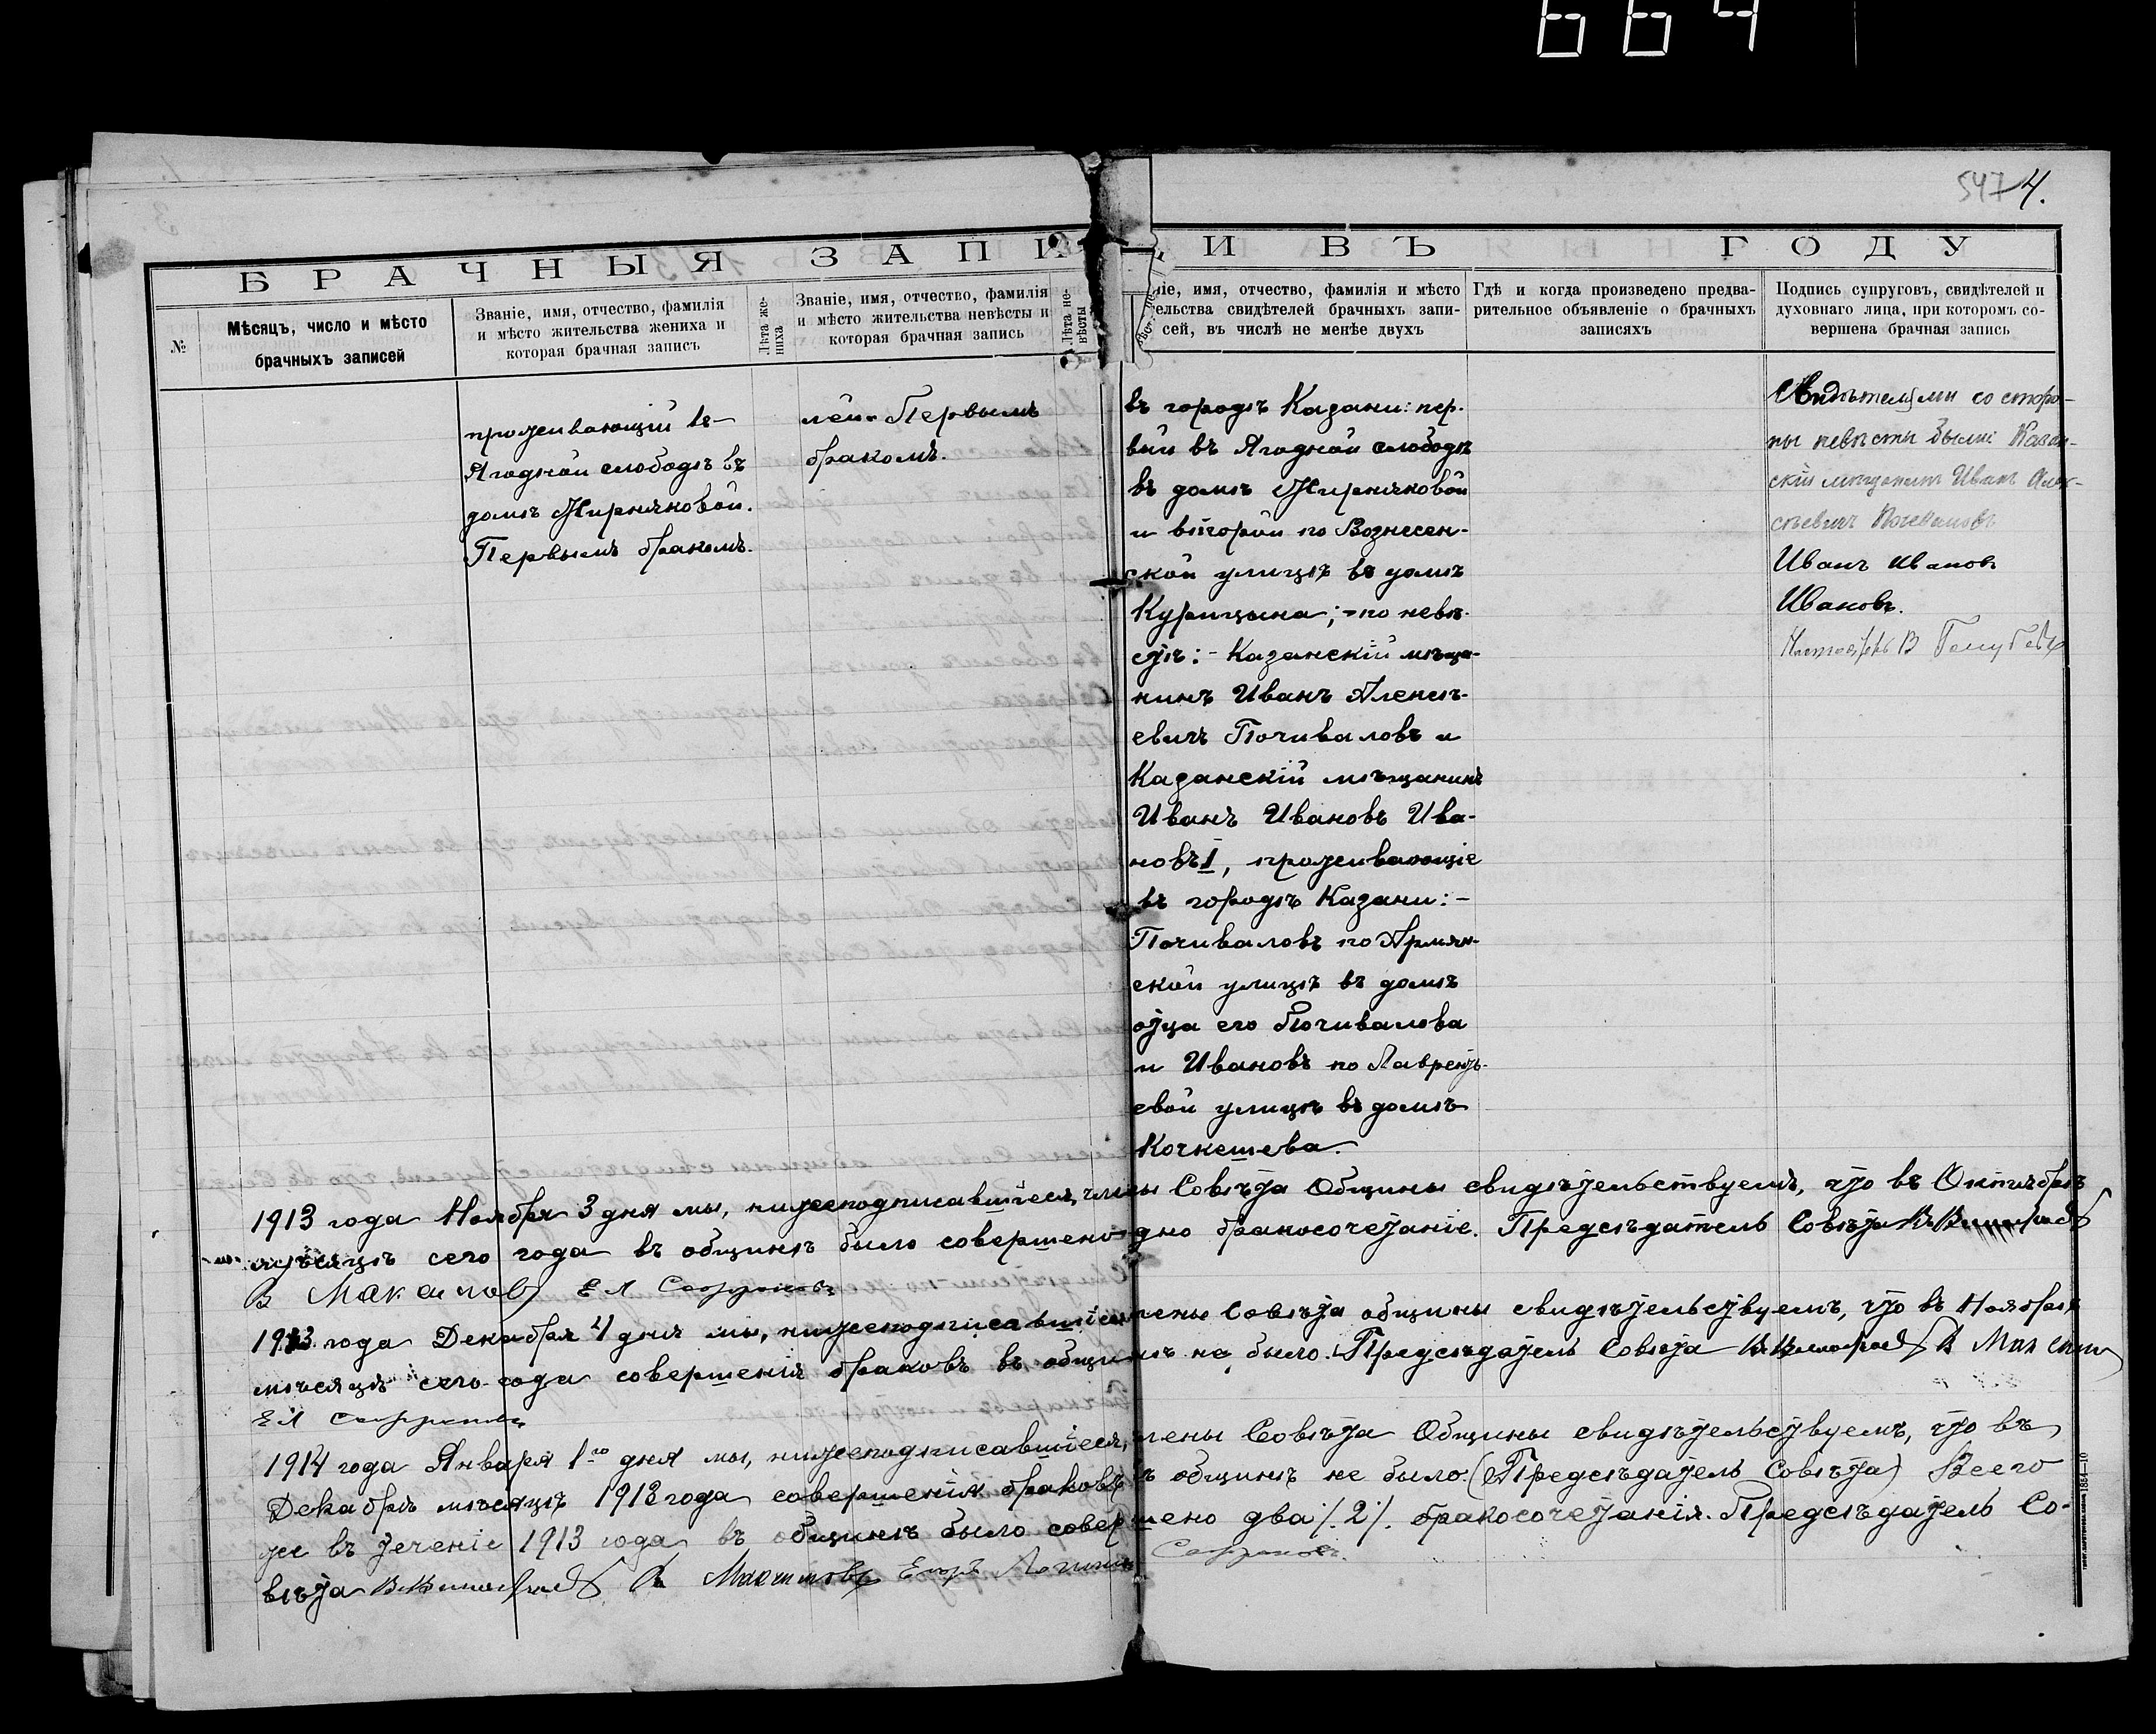 664
547 4.
БРАЧНЫЯ ЗАПИ И ВЪ ГОДУ
№
Мѣсяцъ, число и мѣсто
брачныхъ записей
Званіе, имя, отчество, фамилія
и мѣсто жительства жениха и
которая брачная запись
Лѣта же-
ниха
Званіе, имя, отчество, фамилія
и мѣсто жительства невѣсты и
которая брачная запись
Лѣта не-
вѣсты
ніе, имя, отчество, фамилія и мѣсто
ельства свидѣтелей брачныхъ запи-
сей, въ числѣ не менѣе двухъ
Гдѣ и когда произведено предва-
рительное объявленіе о брачныхъ
записяхъ
Подпись супруговъ, свидѣтелей и
духовнаго лица, при которомъ со-
вершена брачная запись
проживающій въ
Ягодной слободѣ въ
домѣ Жирняковой.
Первымъ бракомъ.
Первымъ
бракомъ.
въ городѣ Казани: пер-
вый въ Ягодной слободѣ
въ домѣ Жирняковой
и второй по Вознесен-
ской улицѣ въ домѣ
Курицына; - по невѣ-
стѣ: - Казанскій мѣща-
нинъ Иванъ Алексѣ-
евичъ Почиваловъ и
Казанскій мѣщанинъ
Иванъ Ивановъ Ива-
новъ I, проживающіе
въ городѣ Казани: -
Почиваловъ по Армян-
ской улицѣ въ домѣ
отца его Почивалова
и Ивановъ по Лавренть-
евой улицѣ въ домѣ
Кочкешева.
Свидѣтелями со сторо-
ны невѣсты были Казан-
скій мѣщанинъ Иванъ Алек-
сѣевичъ Почеваловъ
Иванъ Ивановъ
Ивановъ.
1913 года Ноября 3 дня мы, нижеподписавшіеся, члены Совѣта Общины свидѣтельствуемъ, что въ Октябрѣ
мѣсяцѣ сего года въ общинѣ было совершено одно бракосочетаніе. Предсѣдатель Совѣта
В Макаловъ Е Л Сафроновъ
1913 года Декабря 4 дня мы, нижеподписавшіеся члены Совѣта общины свидѣтельствуемъ, что въ Ноябрѣ
мѣсяцѣ сего года совершенія браковъ въ общинѣ не было. Предсѣдатель Совѣта
Е Л Сафроновъ
1914 года Января 1го дня мы, нижеподписавшіеся, члены Совѣта Общины свидѣтельствуемъ, что въ
Декабрѣ мѣсяцѣ 1913 года совершенія браковъ въ общинѣ не было. (Предсѣдатель Совѣта) Всего
же въ теченіе 1913 года въ общинѣ было совершено два /.2/. бракосочетанія. Предсѣдатель Со-
вѣта Егоръ Логиновъ Сафроновъ.